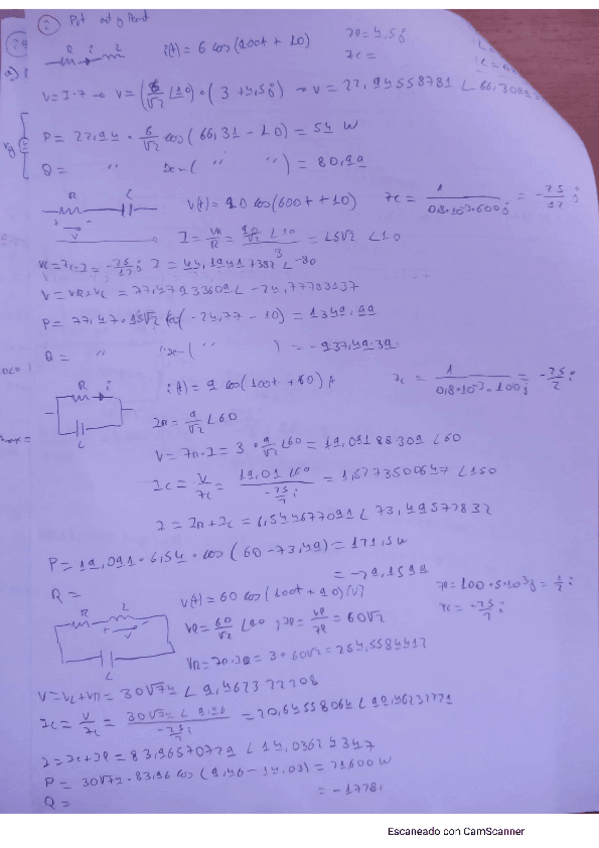 2) Pot
R i L i(t) = 6 cos(900t + 10) ZL = 4,5j
ZC =
a)
V = I·Z → V = (6/√2 ∠10)·(3 + 4,5j) → V = 22,94558781 ∠66,3099
P = 22,94 · 6/√2 cos(66,31 - 10) = 54 W
Q = " sen( " " ) = 80,99
R C v(t) = 90 cos(600t + 10) ZC = 1/(0,8·10^-3·600j) = -25/12 j
I = VR/R = (90/√2 ∠10)/3 = 15√2 ∠10
VC = ZC·I = -25/12 j · I = 44,19417382 ∠-80
V = VR + VC = 77,47933609 ∠-24,77783137
P = 77,47·15√2 cos(-24,77 - 10) = 1349,99
Q = " " sen( " ) = -937,49
R i i(t) = 9 cos(100t + 60) A ZC = 1/(0,8·10^-3·100j) = -25/2 j
C
IR = 9/√2 ∠60
V = ZR·I = 3·9/√2 ∠60 = 19,09188309 ∠60
IC = V/ZC = (19,01 ∠60)/(-25/2 j) = 1,527350647 ∠150
I = IR + IC = 6,544677091 ∠73,49577832
P = 19,091·6,54·cos(60 - 73,49) = 121,5 W
Q = = -29,15
R L v(t) = 60 cos(100t + 90)(V) ZL = 100·5·10^-3 j = 1/2 j
V VL = 60/√2 ∠90 ; IL = VL/ZL = 60√2 ZC = -25/2 j
C
VR = ZR·IR = 3·60√2 = 254,5584412
V = VL + VR = 30√74 ∠9,462322208
IC = V/ZC = (30√74 ∠9,46)/(-25/2 j) = 20,64558064 ∠99,4623
I = IC + IL = 83,96570729 ∠14,03624347
P = 30√74·83,96 cos(9,46 - 14,03) = 21600 W
Q = = -1728
Escaneado con CamScanner